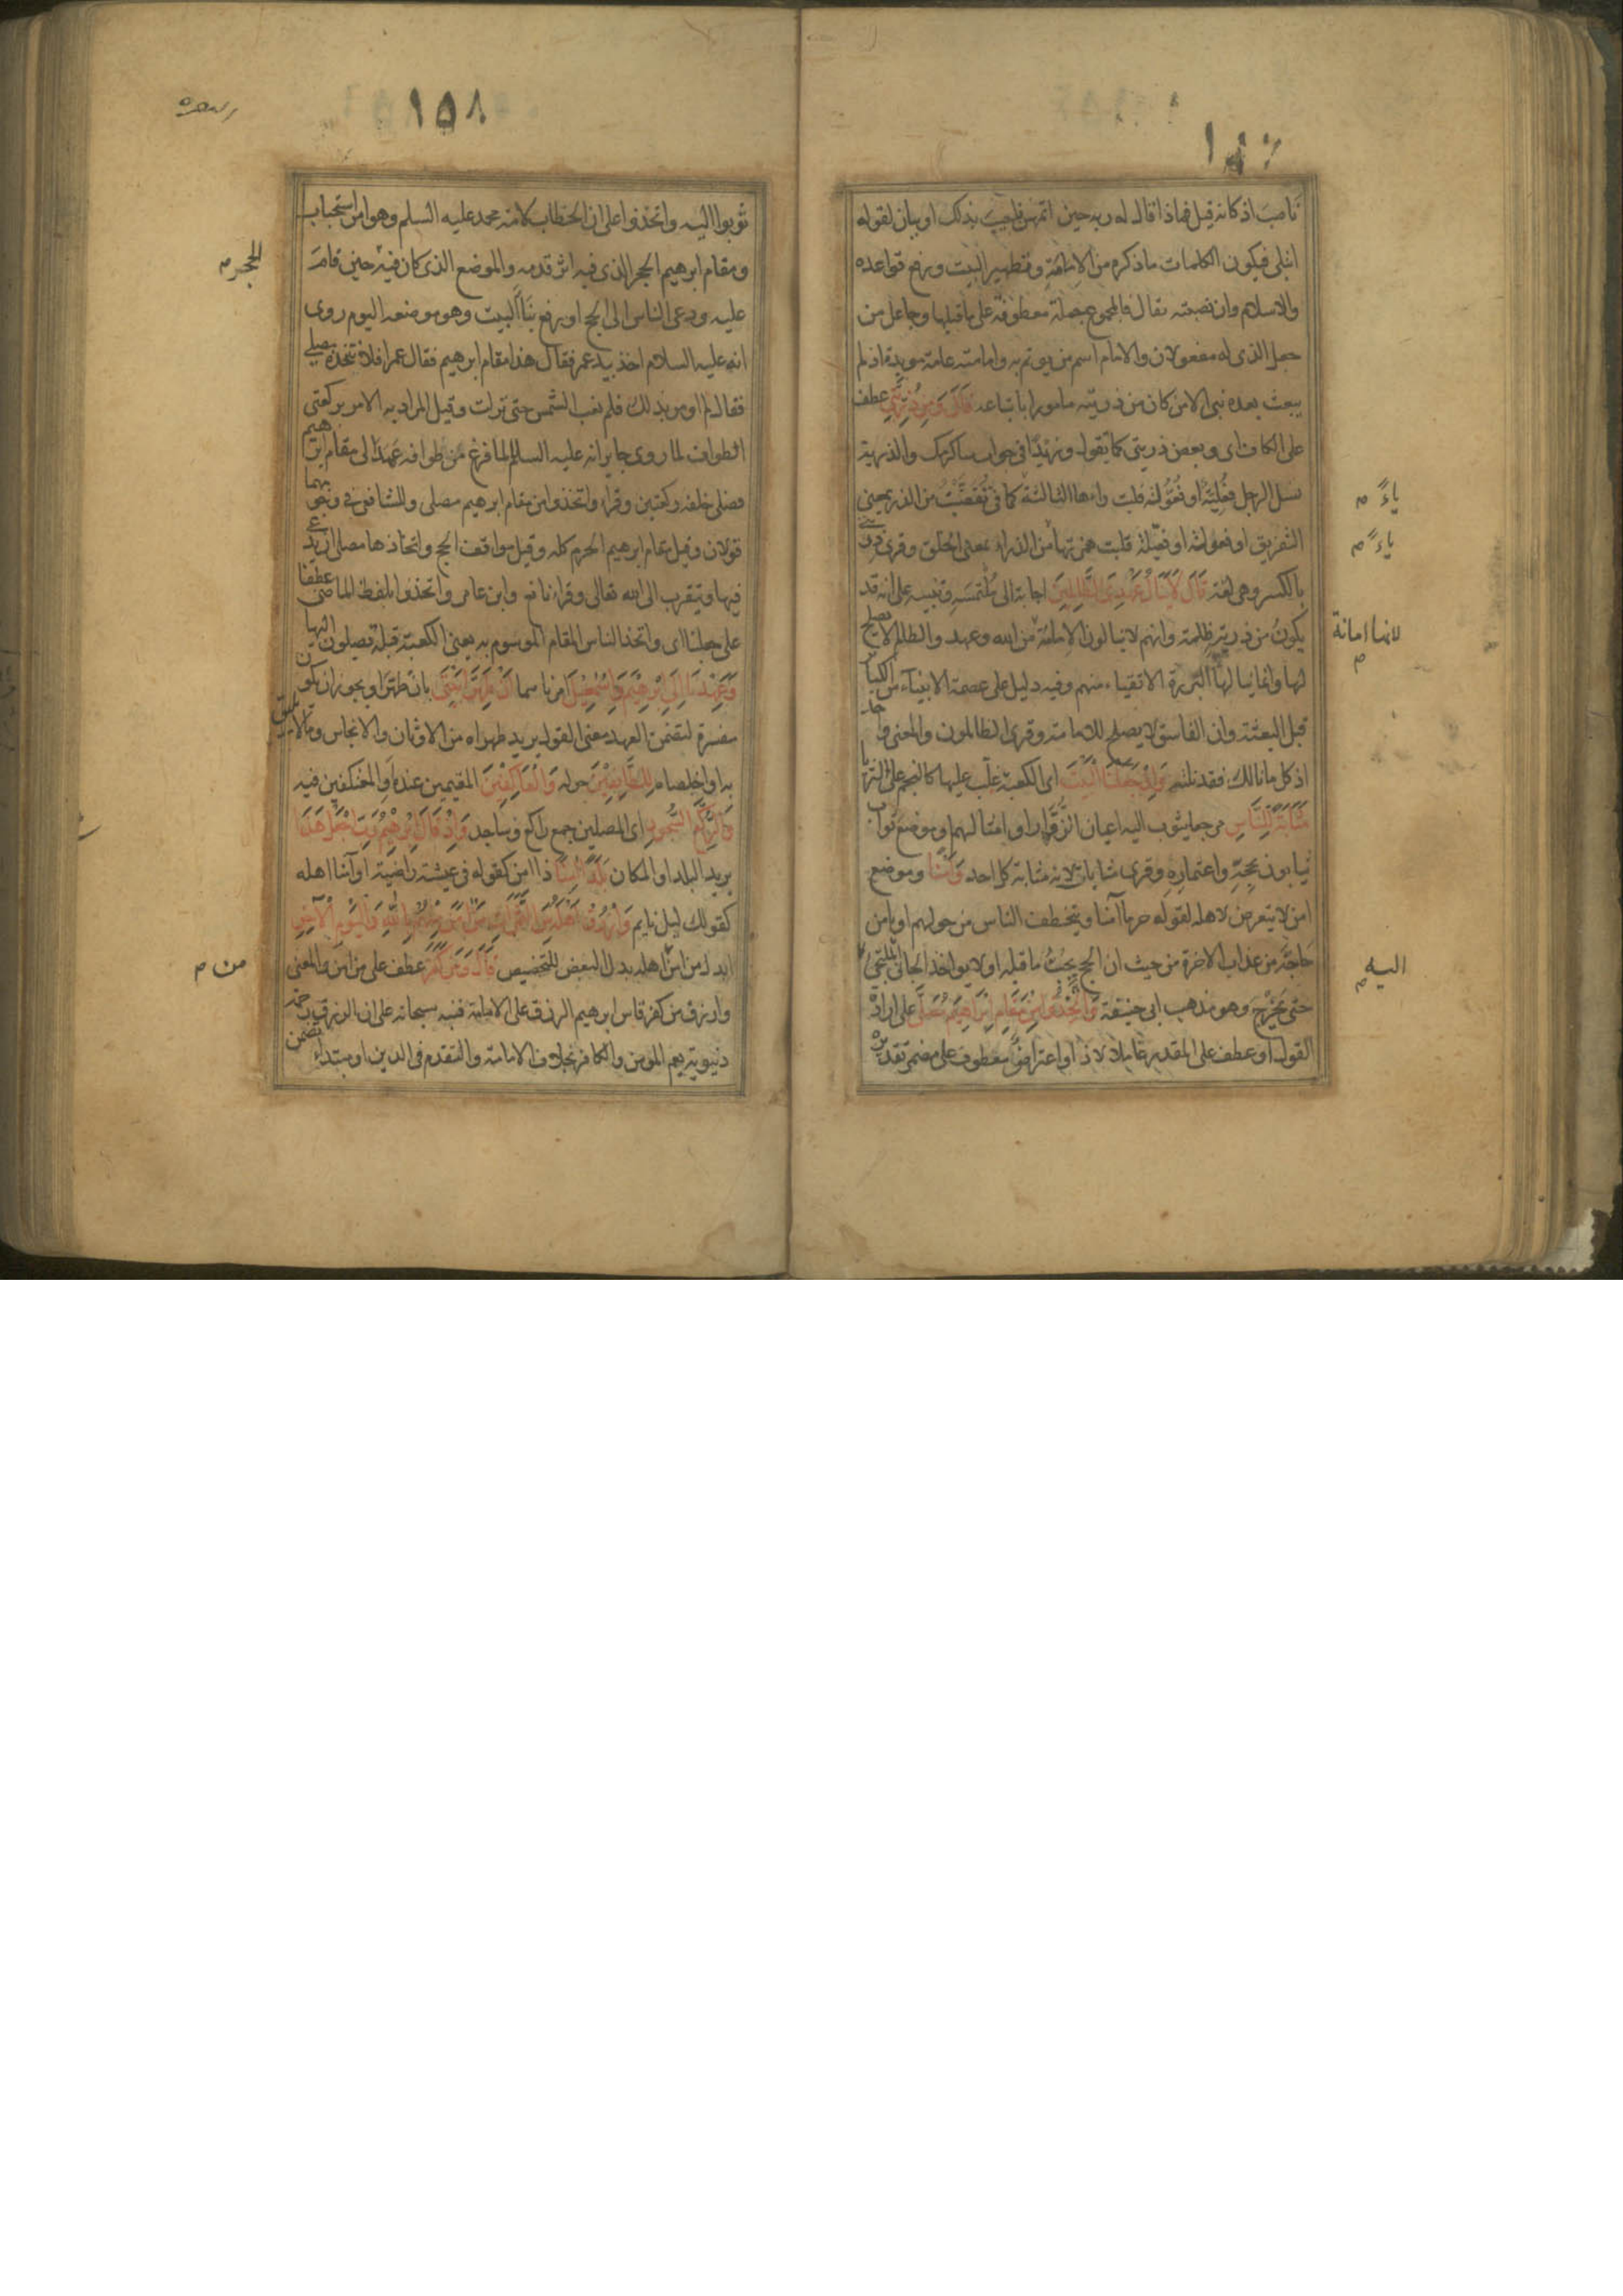 ناصب اذ كانه قيل فماذا قال له ربه حين اتمهن فاجيب بذلك او بيان لقوله
ابتلى فيكون الكلمات ما ذكره من الامامة وتطهير البيت ورفع قواعده
والاسلام وان نصبته بقال فالمجموع جملة معطوفة على ماقبلها وجاعل من
جعل الذى له مفعولان والامام اسم من يوتم به وامامته عامة موبدة اذ لم
يبعث بعده نبى الا من كان من ذريته مامورا باتباعه قَالَ وَمِن ذُرِّيَّتِي عطف
على الكاف اى وبعض ذريتى كما تقول وزيدًا فى جواب ساكرمك والذرية
نسل الرجل فعلية او فعولة قلبت راءها الثالثة كما فى تقضيت من الذر بمعنى
التفريق او فعولة او فعيلة قلبت همزتها من الذراء بمعنى الخلق وقرى ذريتى
بالكسر وهى لغة قَالَ لَا يَنَالُ عَهْدِي الظَّالِمِينَ اجابة الى ملتمسه وتنبيه على انه قد
يكون من ذريته ظلمة وانهم لا ينالون الامامة من الله وعهد والظالم لا يصلح
لها وانما ينالها البررة الاتقياء منهم وفيه دليل على عصمة الانبياء من الكبائر
قبل البعثة وان الفاسق لا يصلح للامامة وقرى الظالمون والمعنى واحد
اذ كل ما نالك فقد نلته وَإِذْ جَعَلْنَا الْبَيْتَ اى الكعبة غلب عليها كالنجم على الثريا
مَثَابَةً لِلنَّاسِ مرجعا يثوب اليه اعيان الزوار او امثالهم او موضع ثواب
يثابون بحجه واعتماره وقرى مثابات لانه مثابة كل احد وَأَمْنًا وموضع
امن لا يتعرض لاهله لقوله حرما آمنا ويتخطف الناس من حولهم او يامن
حاجه من عذاب الاخرة من حيث ان الحج يجب ما قبله او لا يواخذ الجانى الملتجى
حتى يخرج وهو مذهب ابى حنيفة وَاتَّخِذُوا مِنْ مَقَامِ إِبْرَاهِيمَ مُصَلًّى على ارادة
القول او عطف على المقدر عاملا لاذ او اعتراض معطوف على مضمر تقديره
ياءً م
ياءً م
لانها امانة م
اليه م
١٥٨
البقره
ثوبوا اليه واتخذوا على ان الخطاب لامة محمد عليه السلم وهو امر استحباب
ومقام ابرهيم الحجر الذى فيه اثر قدمه والموضع الذى كان فيه حين قام
عليه ودعى الناس الى الحج او رفع بناء البيت وهو موضعه اليوم روى
انه عليه السلام اخذ بيد عمر فقال هذا مقام ابرهيم فقال عمر افلا نتخذه مصلى
فقال لم اومر بذلك فلم تغب الشمس حتى نزلت وقيل المراد به الامر بركعتى
الطواف لما روى جابر انه عليه السلم لما فرغ من طوافه عمد الى مقام ابرهيم
فصلى خلفه ركعتين وقراء واتخذوا من مقام ابرهيم مصلى وللشافعى فى وجوبهما
قولان وقيل مقام ابرهيم الحرم كله وقيل مواقف الحج واتخاذها مصلى ان يدعى
فيها ويتقرب الى الله تعالى وقراء نافع وابن عامر واتخذوا بلفظ الماضى عطفا
على جعلنا اى واتخذ الناس المقام الموسوم به يعنى الكعبة قبلة يصلون اليها
وَعَهِدْنَا إِلَى إِبْرَهِيمَ وَإِسْمَعِيلَ امرناهما أَنْ طَهِّرَا بَيْتِيَ بان طهرا ويجوز ان يكون
مفسرة لتضمن العهد معنى القول يريد طهراه من الاوثان والانجاس وما لا يليق
به او اخلصاه لِلطَّائِفِينَ حوله وَالْعَاكِفِينَ المقيمين عنده او المعتكفين فيه
وَالرُّكَّعِ السُّجُودِ اى المصلين جمع راكع وساجد وَإِذْ قَالَ إِبْرَهِيمُ رَبِّ اجْعَلْ هَذَا
يريد البلد او المكان بَلَدًا آمِنًا ذا امن كقوله فى عيشة راضية او آمنا اهله
كقولك ليل نايم وَارْزُقْ أَهْلَهُ مِنَ الثَّمَرَاتِ مَنْ آمَنَ مِنْهُمْ بِاللَّهِ وَالْيَوْمِ الْآخِرِ
ابدل من امن اهله بدل البعض للتخصيص قَالَ وَمَنْ كَفَرَ عطف على من امن والمعنى
وارزق من كفر قاس ابرهيم الرزق على الامامة فنبه سبحانه على ان الرزق رحمة
دنيوية يعم المومن والكافر بخلاف الامامة والتقدم فى الدين او مبتداء تضمن
الحجر م
من م